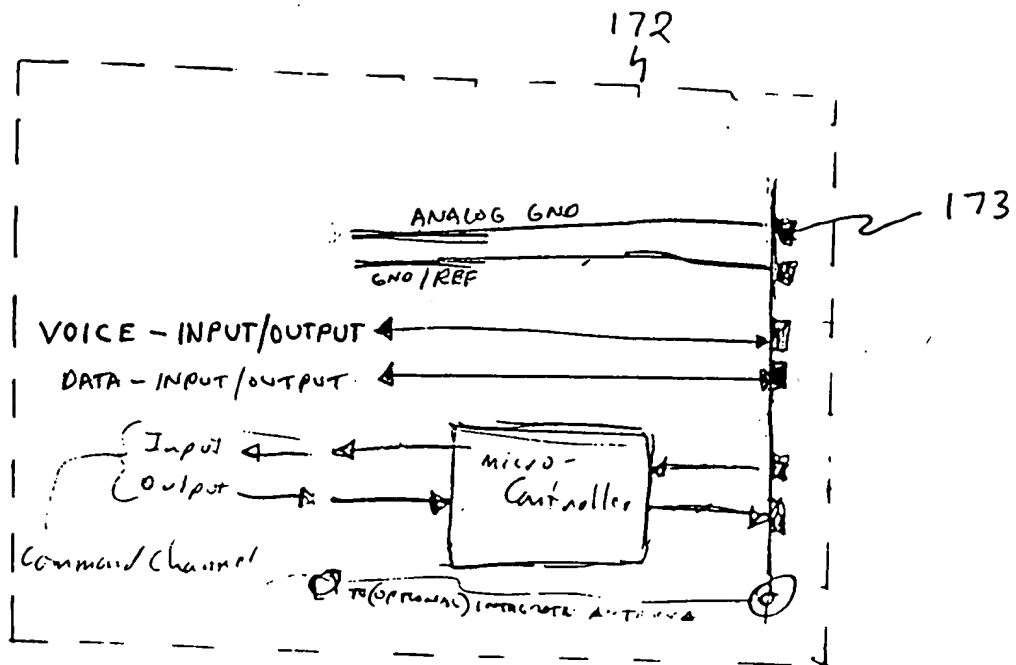 172
173
ANALOG GND
GND/REF
VOICE - INPUT/OUTPUT
DATA - INPUT/OUTPUT
Input
Output
micro-
Controller
Command Channel
TO (OPTIONAL)